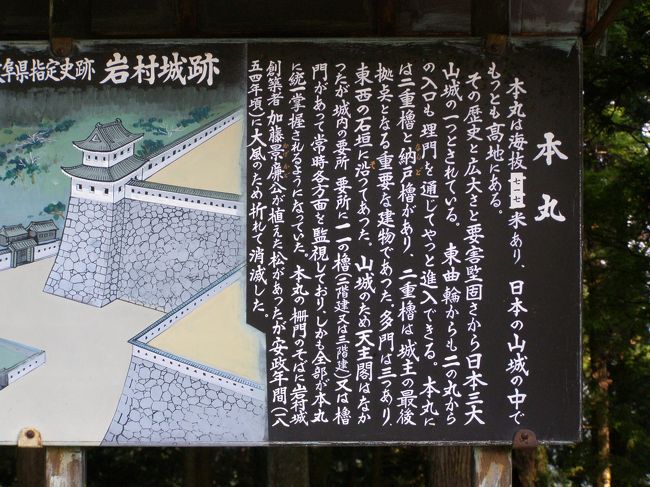 阜県指定史跡 岩村城跡
本丸
本丸は海抜七一七米あり、日本の山城の中で
もっとも高地にある。
その歴史と広大さと要害堅固さから日本三大
山城の一つとされている。東曲輪からも二の丸から
の入口も埋門を通じてやっと進入できる。本丸に
は二重櫓と納戸櫓があり、二重櫓は城主の最後
拠点となる重要な建物であった。多門は三つあり、
東西の石垣に沿ってあった。山城のため天主閣はなか
ったが城内の要所要所に一一の櫓(二階建又は三階建)又は櫓
門があって常時各方面を監視しておりしかも全部が本丸
に統一掌握されるようになっていた。本丸の柵門のそばに岩村城
創築者加藤景廉公が植えた松があったが安政年間(一八
五四年頃)に大風のため折れて消滅した。